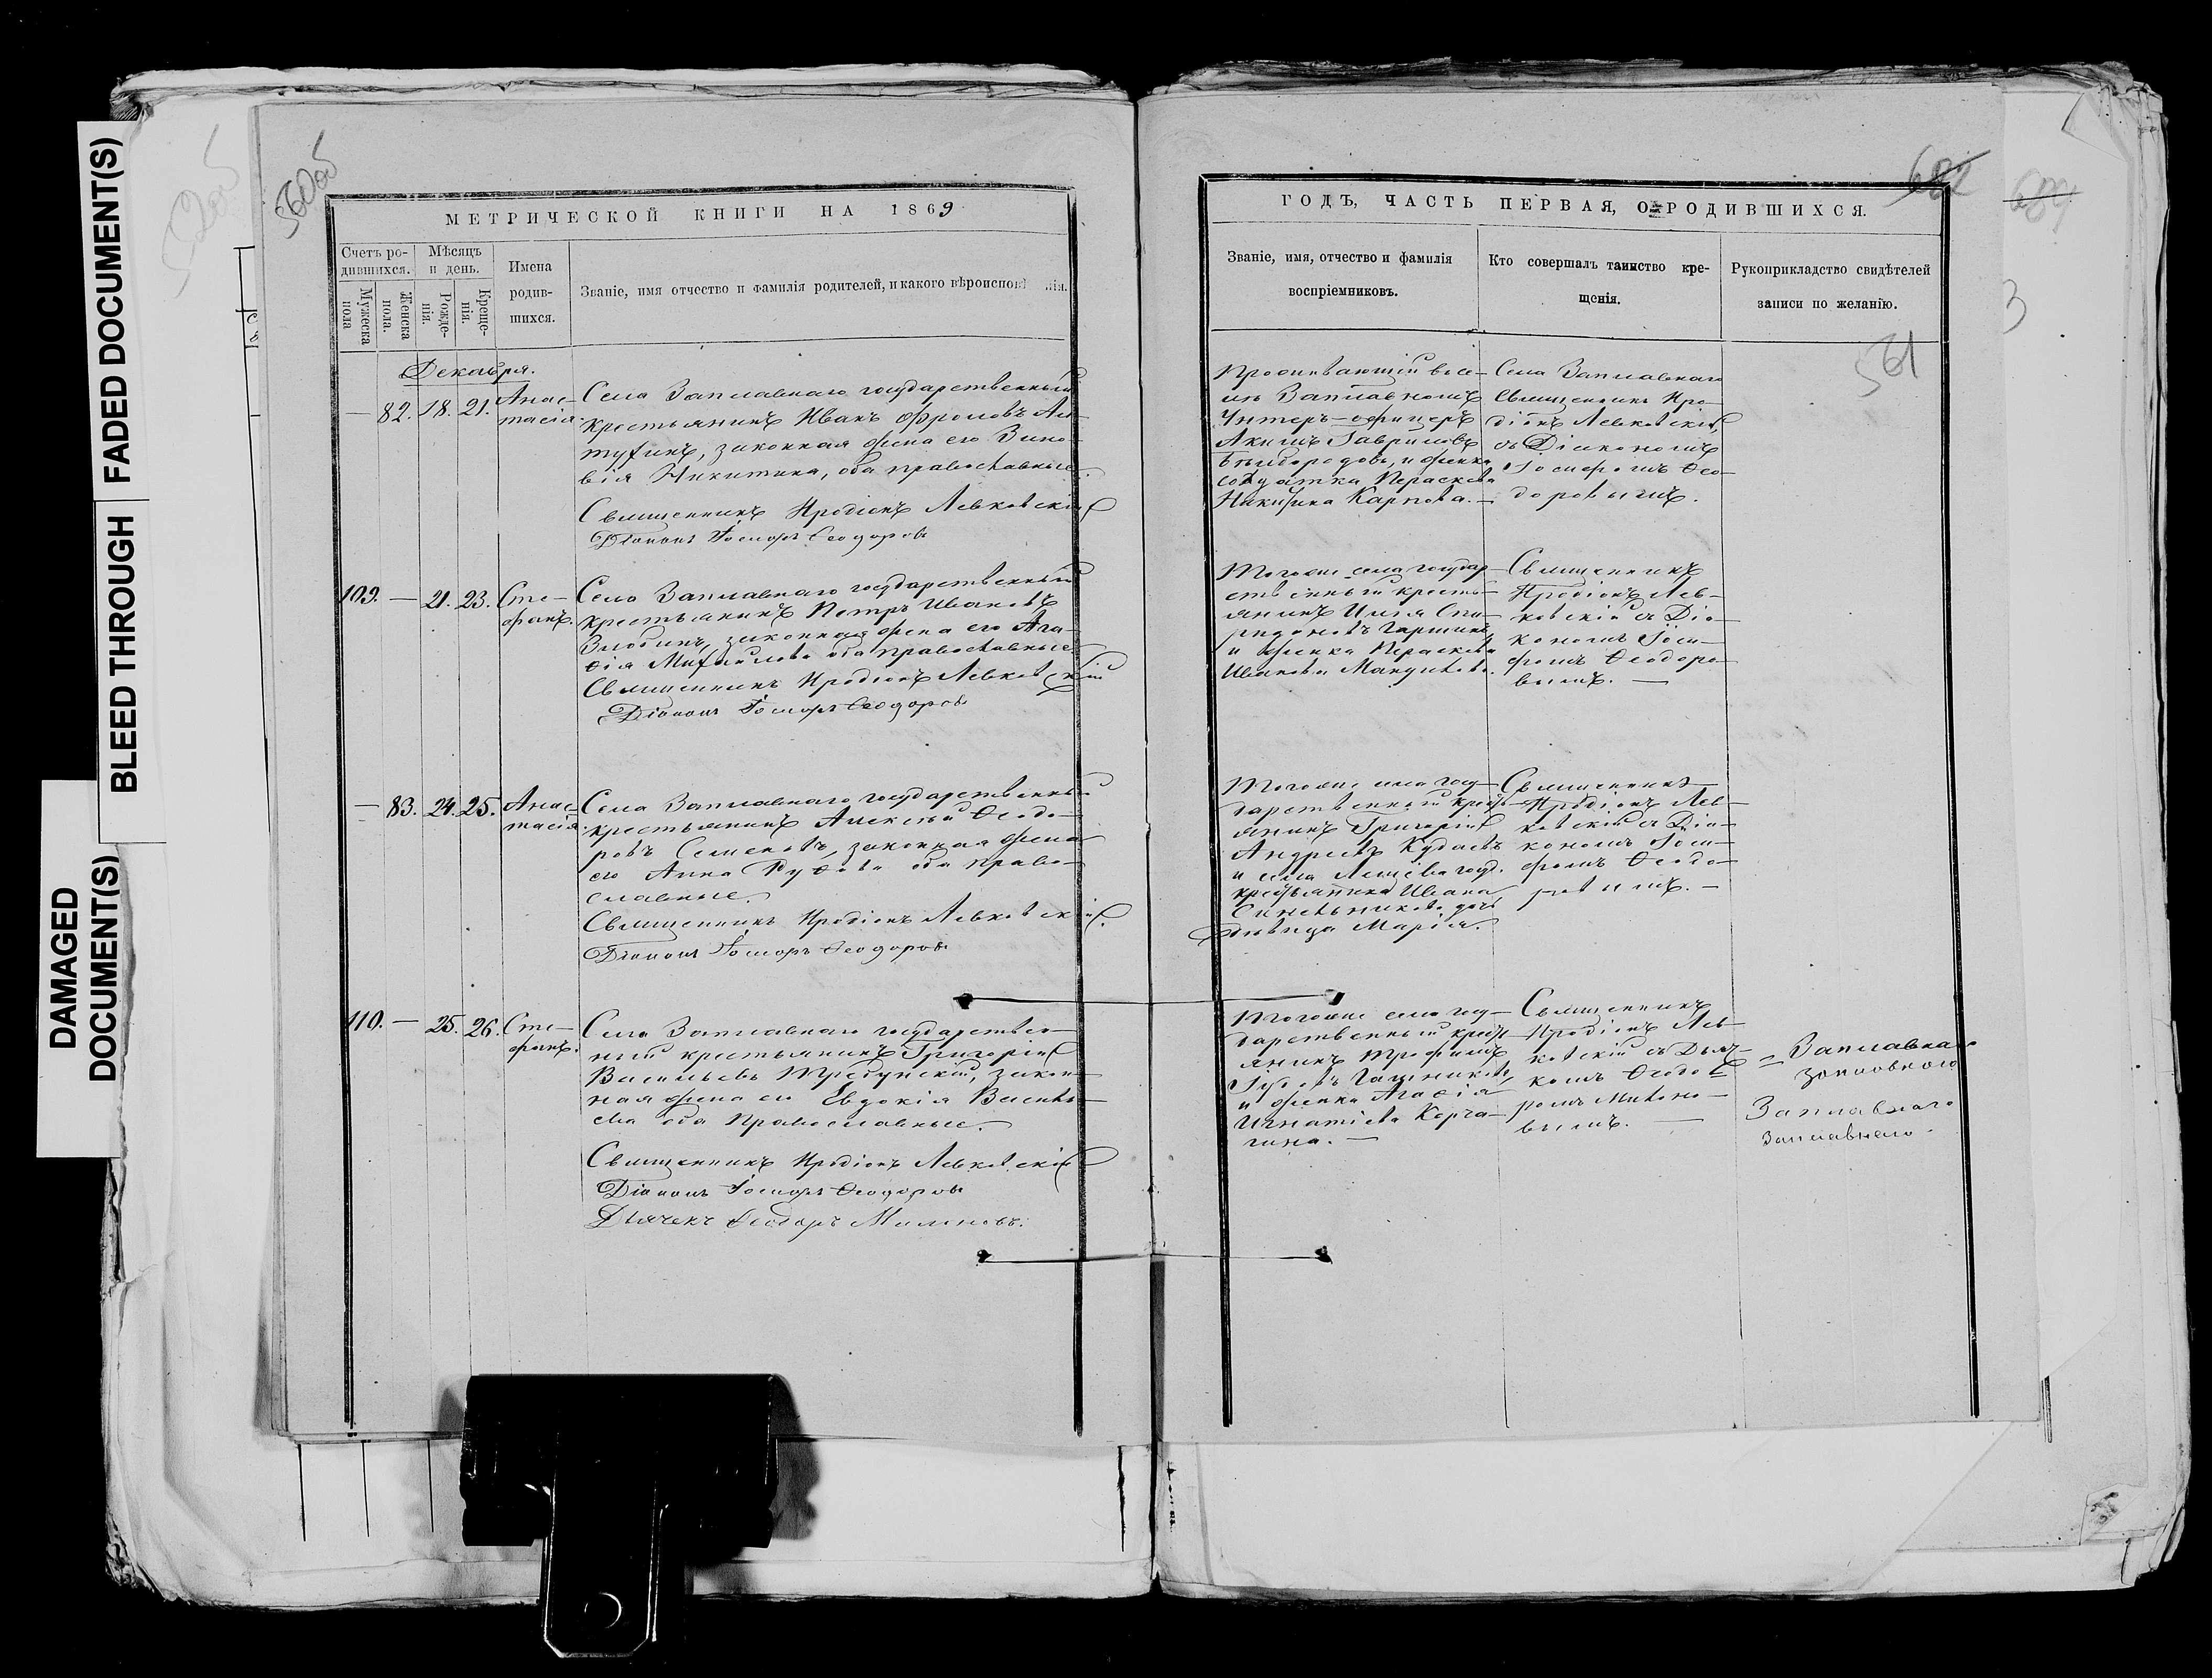 FADED DOCUMENT(S)
BLEED THROUGH
DAMAGED
DOCUMENT(S)
560об
МЕТРИЧЕСКОЙ КНИГИ НА 1869
Счетъ ро-
дившихся.
Мужеска
пола
Женска
пола.
Мѣсяцъ
и день.
Рожде-
нія.
Креще-
нія.
Имена
родив-
шихся.
Званіе, имя отчество и фамилія родителей, и какого вѣроиспові нія.
Декабря.
— 82. 18. 21. Анас-
тасія
Села Заплавнаго государственный
крестьянинъ Иванъ Фроловъ
законная жена его Зино-
вія Никитина, оба православные.
Священникъ Иродіонъ Левковскій
Діаконъ Іосифъ Ѳеодоровъ
109. — 21. 23. Сте-
фанъ.
Села Заплавнаго государственный
крестьянинъ Петръ Ивановъ
Злобинъ, законная жена его Ага-
ѳія Михайлова оба православные
Священникъ Иродіонъ Левковскій
Діаконъ Іосифъ Ѳеодоровъ
— 83. 24. 25. Анас-
тасія.
Села Заплавнаго государственный
крестьянинъ Алексѣй Ѳеодо-
ровъ Семеновъ, законная жена
его Анна оба право-
славные.
Священникъ Иродіонъ Левковскій
Діаконъ Іосифъ Ѳеодоровъ
110. — 25. 26. Сте-
фанъ.
Села Заплавнаго государствен-
ный крестьянинъ Григорій
Васильевъ Требунскій, закон-
ная жена его Евдокія Василь-
ева оба Православные.
Священникъ Иродіонъ Левковскій
Діаконъ Іосифъ Ѳеодоровъ
Дьячекъ Ѳеодоръ
682
ГОДЪ, ЧАСТЬ ПЕРВАЯ, О РОДИВШИХСЯ.
Званіе, имя, отчество и фамилія
воспріемниковъ.
Кто совершалъ таинство кре-
щенія.
Рукоприкладство свидѣтелей
записи по желанію.
561
Проживающій въ се-
лѣ Заплавномъ
Унтеръ-офицеръ
Акимъ Гавриловъ
Бѣлобородовъ, и женка
солдатка Параскева
Никитина Карпова. —
Села Заплавнаго
Священникъ Иро-
діонъ Левковскій,
съ Діакономъ
Іосифомъ Ѳео-
доровымъ.
Тогоже села государ-
ственный кресть-
янинъ Илья Спи-
ридоновъ Гаршинъ,
и женка Параскева
Иванова
Священникъ
Иродіонъ Лев-
ковскій съ Діа-
кономъ Іоси-
фомъ Ѳеодоро-
вымъ. —
Тогоже села госу-
дарственный крест-
янинъ Григорій
Андреевъ Кудаевъ
и села госуд.
крестьянина Ивана
Синельникова дочь
дѣвица Марія.
Священникъ
Иродіонъ Лев-
ковскій съ Діа-
кономъ Іоси-
фомъ Ѳеодо-
ровымъ. —
Тогоже села госу-
дарственный крест-
янинъ Трофимъ
и женка Агаѳія
Игнатіева Корча-
гина. —
Священникъ
Иродіонъ Лев-
ковскій съ Дьяч-
комъ Ѳеодо-
ромъ
вымъ. —
Заплавнаго
Заплавнаго
689
3